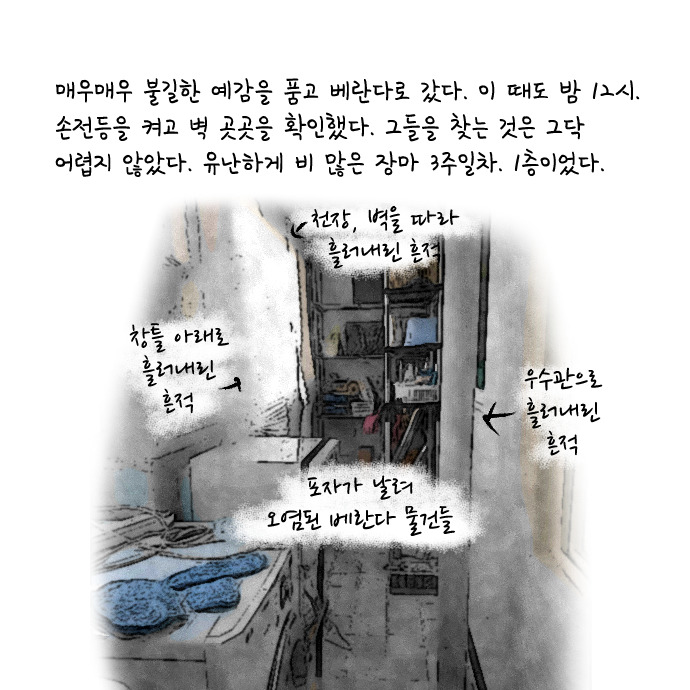 매우매우 불길한 예감을 품고 베란다로 갔다. 이 때도 밤 12시.
손전등을 켜고 벽 곳곳을 확인했다. 그들을 찾는 것은 그닥
어렵지 않았다. 유난하게 비 많은 장마 3주일차. 1층이었다.
천장, 벽을 따라
흘러내린 흔적
창틀 아래로
흘러내린
흔적
우수관으로
흘러내린
흔적
포자가 날려
오염된 베란다 물건들